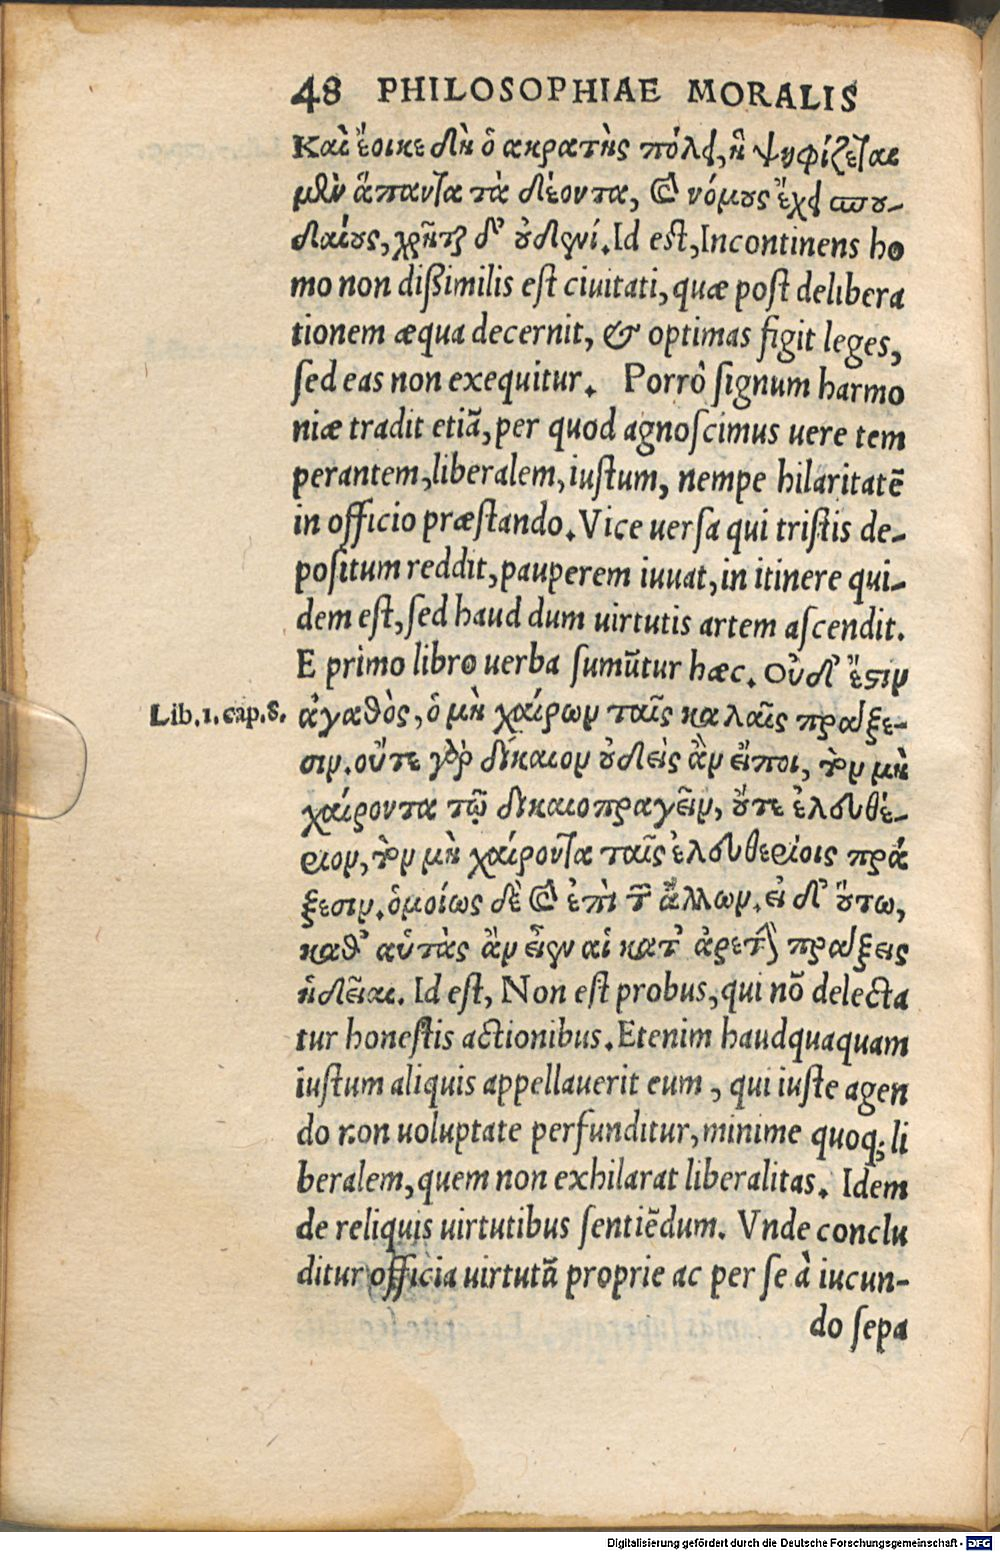 48 PHILOSOPHIAE MORALIS
Καὶ ἔοικε δὴ ὁ ακρατὴς πόλει, ἣ ψηφίζεται
μὲν ἅπαντα τὰ δέοντα, καὶ νόμους ἔχει σπου-
δαίους, χρῆται δ' οὐδενί. Id est, Incontinens ho
mo non dißimilis est ciuitati, quæ post delibera
tionem æqua decernit, & optimas figit leges,
sed eas non exequitur. Porrò signum harmo
niæ tradit etiã, per quod agnoscimus uere tem
perantem, liberalem, iustum, nempe hilaritatẽ
in officio præstando. Vice uersa qui tristis de-
positum reddit, pauperem iuuat, in itinere qui-
dem est, sed haud dum uirtutis artem ascendit.
E primo libro uerba sumũtur hæc. Οὐδ' ἔστιν
Lib. 1. cap. 8. ἀγαθὸς, ὁ μὴ χαίρων ταῖς καλαῖς πράξε-
σιν. οὔτε γὰρ δίκαιον οὐδεὶς ἂν εἴποι, τὸν μὴ
χαίροντα τῷ δικαιοπραγεῖν, οὔτε ἐλευθέ-
ριον, τὸν μὴ χαίροντα ταῖς ἐλευθερίοις πρά
ξεσιν. ὁμοίως δὲ καὶ ἐπὶ τῶν ἄλλων. εἰ δ' οὕτω,
καθ' αὑτὰς ἂν εἶεν αἱ κατ' ἀρετὴν πράξεις
ἡδεῖαι. Id est, Non est probus, qui nõ delecta
tur honestis actionibus. Etenim haudquaquam
iustum aliquis appellauerit eum, qui iuste agen
do non uoluptate perfunditur, minime quoq; li
beralem, quem non exhilarat liberalitas. Idem
de reliquis uirtutibus sentiẽdum. Vnde conclu
ditur officia uirtutũ proprie ac per se à iucun-
do sepa
Digitalisierung gefördert durch die Deutsche Forschungsgemeinschaft - DFG